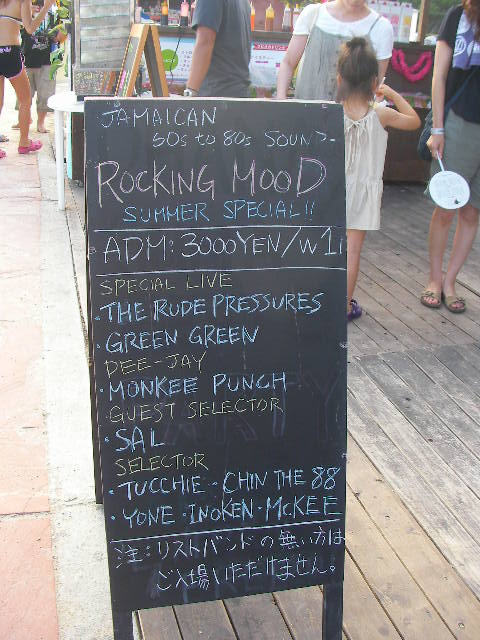 JAMAICAN
60s to 80s SOUND
ROCKING MOOD
SUMMER SPECIAL!!
ADM: 3000YEN/W1
SPECIAL LIVE
・THE RUDE PRESSURES
・GREEN GREEN
DEE-JAY
・MONKEE PUNCH
GUEST SELECTOR
・SAL
SELECTOR
・TUCCHIE・CHIN THE 88
・YONE・INOKEN・McKEE
注:リストバンドの無い方は
ご入場いただけません。